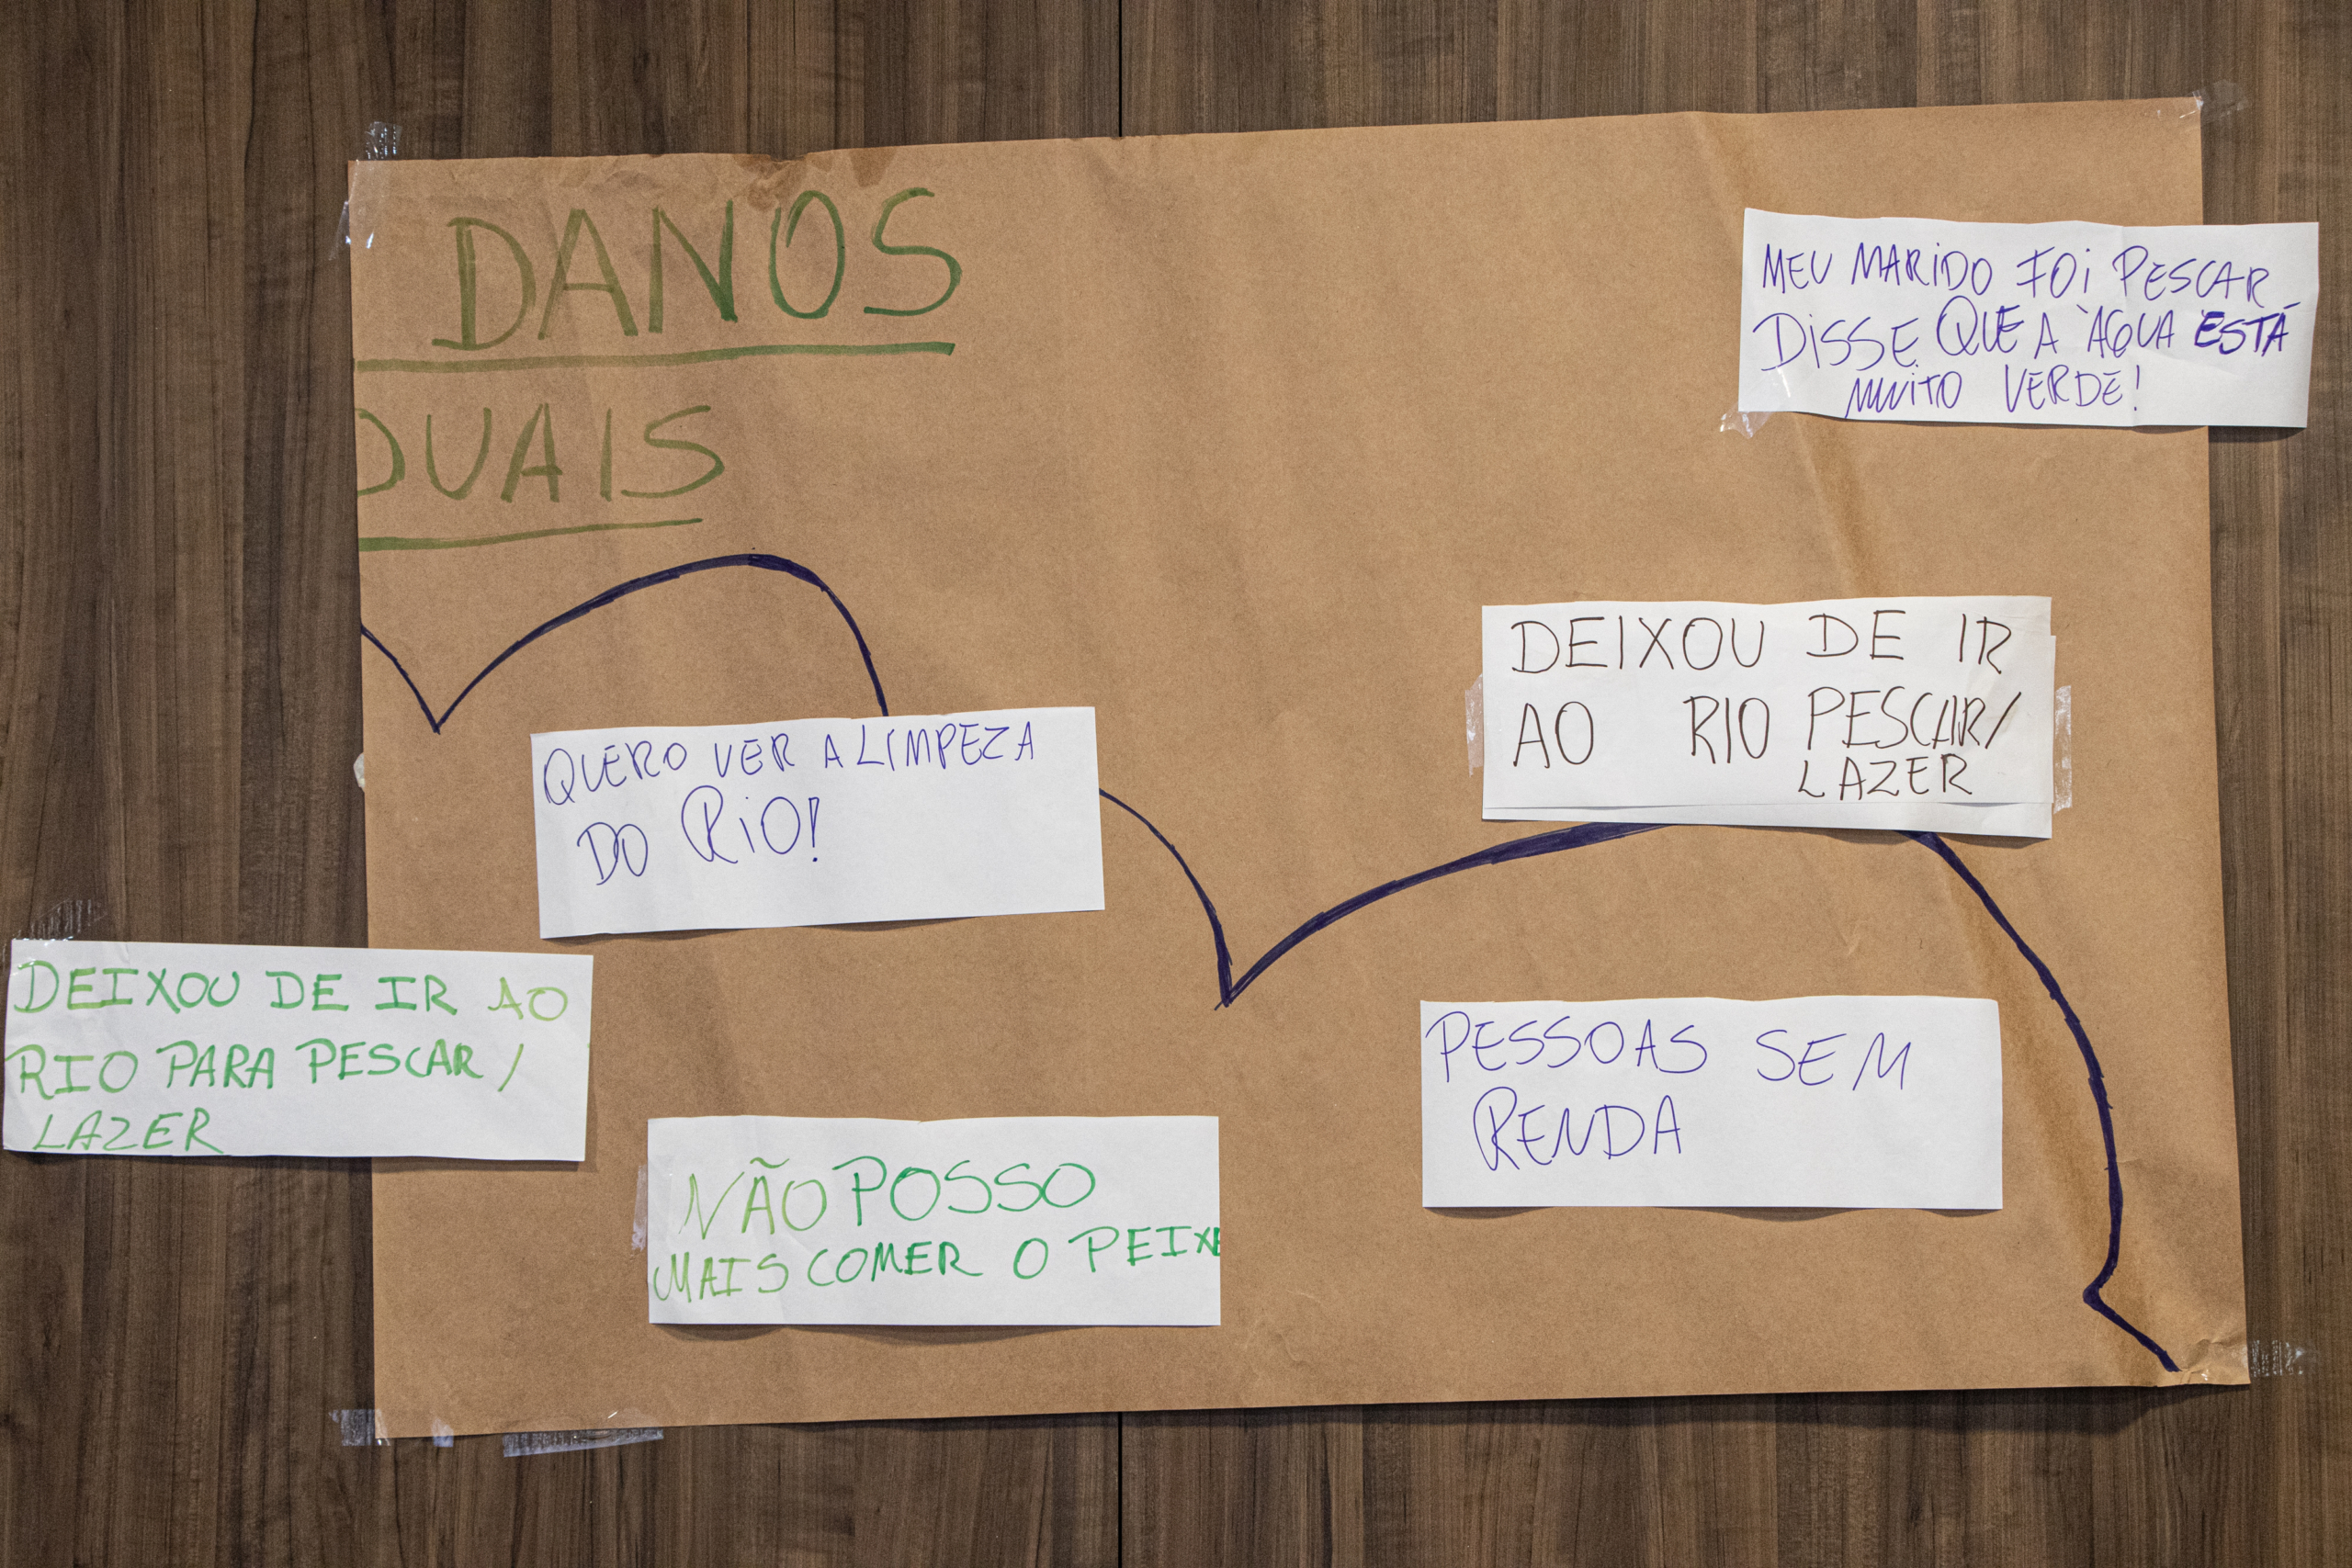 DANOS
DUAIS
MEU MARIDO FOI PESCAR
DISSE QUE A ÀGUA ESTÁ
MUITO VERDE!
DEIXOU DE IR
AO RIO PESCAR/
LAZER
QUERO VER A LIMPEZA
DO RIO!
DEIXOU DE IR AO
RIO PARA PESCAR/
LAZER
PESSOAS SEM
RENDA
NÃO POSSO
MAIS COMER O PEIXE